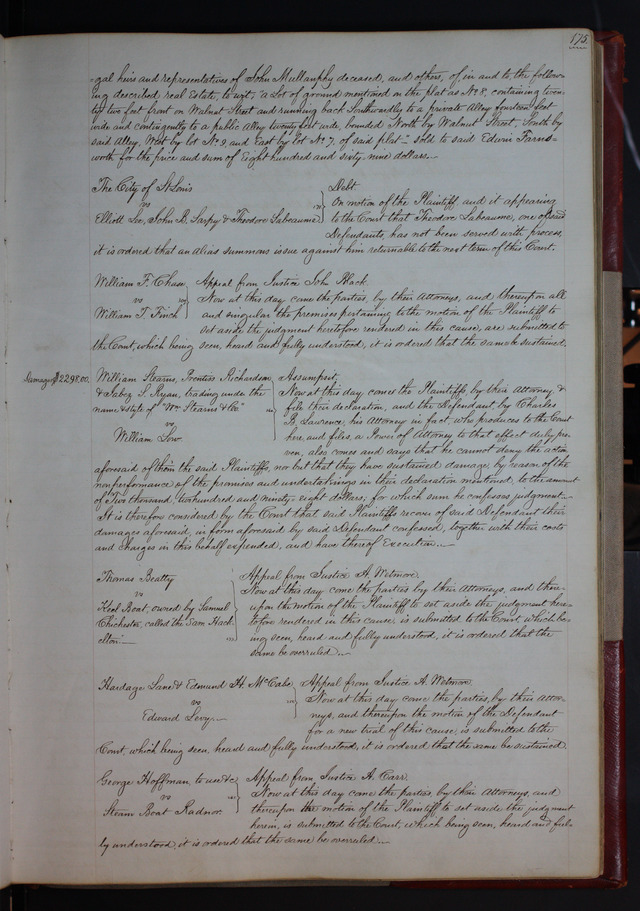 175
-gal heirs and representatives of John Mullanphy deceased, and others, of in and to the follow-
ing described real Estate, to wit; "a Lot of ground mentioned on the plat as No 8, containing twen-
ty two feet front on Walnut Street and running back Southwardly to a private Alley fourteen feet
wide and contingently to a public Alley twenty feet wide, bounded North by Walnut Street, South by
said Alley, West by lot No 9, and East by lot No 7, of said plat" sold to said Edwin Farns-
worth for the price and sum of Eight hundred and sixty nine dollars.
The City of St Louis
vs
Elliott Lee, John B. Sarpy & Theodore Labeaume
Debt
On motion of the Plaintiff, and it appearing
to the Court that Theodore Labeaume, one of said
Defendants, has not been served with process,
it is ordered that an alias summons issue against him returnable to the next term of this Court.
William F. Chase
vs
William T. Finch
Appeal from Justice John Hack.
Now at this day come the parties, by their Attorneys, and thereupon all
and singular the premises pertaining to the motion of the Plaintiff to
set aside the judgment heretofore rendered in this cause, are submitted to
the Court, which being seen, heard and fully understood, it is ordered that the same be sustained.
Damages $2298.00.
William Stearns, Prentiss Richardson
& Jabez S. Ryan, trading under the
name & style of "Wm Stearns & Co"
vs
William Low
Assumpsit,
Now at this day comes the Plaintiffs, by their Attorney, &
file their declaration, and the Defendant by Charles
B. Lawrence, his Attorney in fact, who produces to the Court
here, and files a Power of Attorney to that effect duly pro-
ven, also comes and says that he cannot deny the action
aforesaid of them the said Plaintiffs, nor but that they have sustained damage, by reason of the
nonperformance of the promises and undertakings in their declaration mentioned, to the amount
of Two thousand, two hundred and ninety-eight dollars, for which sum he confesses judgment.
It is therefore considered by the Court that said Plaintiffs recover of said Defendant their
damages aforesaid, in form aforesaid by said Defendant confessed, together with their costs
and charges in this behalf expended, and have thereof Execution.
Thomas Beatty
vs
Keel Boat, owned by Samuel
Chichester, called the "Sam Hack
elton"
Appeal from Justice A. Wetmore.
Now at this day come the parties by their Attorneys, and there-
upon the motion of the Plaintiff to set aside the judgment here-
tofore rendered in this cause, is submitted to the Court, which be-
ing seen, heard and fully understood, it is ordered that the
same be overruled.
Hardage Lane & Edmund H. McCabe
vs
Edward Levy.
Appeal from Justice A. Wetmore.
Now at this day come the parties, by their Attor-
neys, and thereupon the motion of the Defendant
for a new trial of this cause, is submitted to the
Court, which being seen, heard and fully understood, it is ordered that the same be sustained.
George Hoffman, to use &c
vs
Steam Boat Radnor.
Appeal from Justice A. Carr.
Now at this day came the parties, by their Attorneys, and
thereupon the motion of the Plaintiff to set aside the judgment
herein, is submitted to the Court, which being seen, heard and ful-
ly understood, it is ordered that the same be overruled.